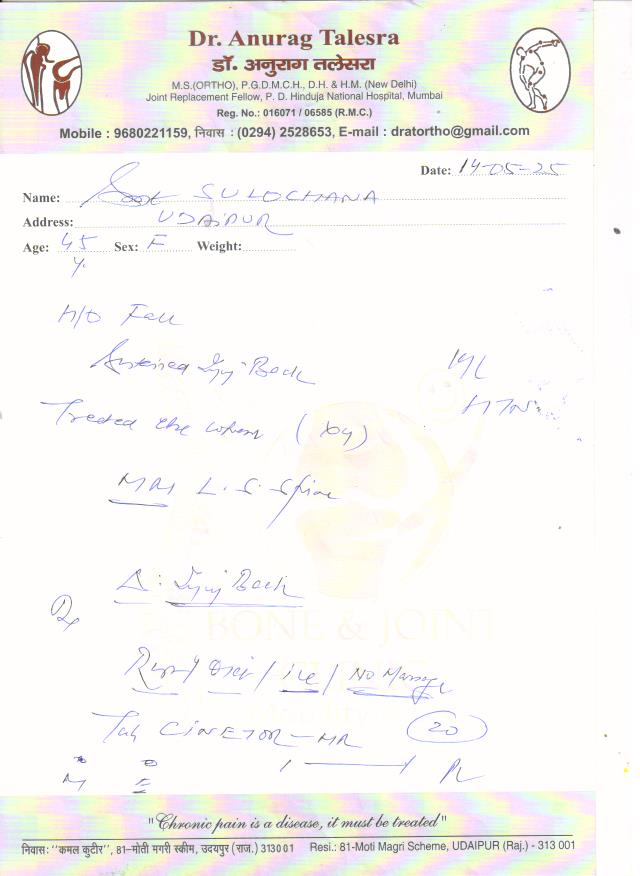 Dr. Anurag Talesra
डॉ. अनुराग तलेसरा
M.S.(ORTHO), P.G.D.M.C.H., D.H. & H.M. (New Delhi)
Joint Replacement Fellow, P. D. Hinduja National Hospital, Mumbai
Reg. No.: 016071 / 06585 (R.M.C.)
Mobile : 9680221159, निवास : (0294) 2528653, E-mail : dratortho@gmail.com
Date: 14-05-25
Name: SULOCHANA
Address: UDAIPUR
Age: 45 y. Sex: F Weight:
H/O Fall
Sustained Injy Back
HTN
Treated else where (
MRI L. S. Spine
Δ: Injy Back
Rx
Rest / / ice / No Massage
Tab CINETOR-MR 20
M E 1 1
BONE & JOINT
"Chronic pain is a disease, it must be treated"
निवास: "कमल कुटीर", 81-मोती मगरी स्कीम, उदयपुर (राज.) 313001 Resi.: 81-Moti Magri Scheme, UDAIPUR (Raj.) - 313 001